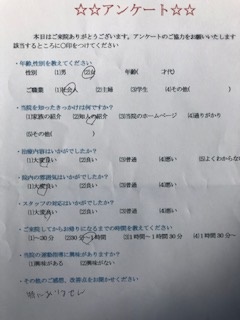 ☆☆アンケート☆☆
本日はご来院ありがとうございます。アンケートのご協力をお願いいたします
該当するところに〇印をつけてください
・年齢,性別を教えてください
性別 (1)男 (2)女 年齢( 才代)
ご職業 (1)社会人 (2)主婦 (3)学生 (4)その他( )
・当院を知ったきっかけは何ですか?
(1)家族の紹介 (2)知人の紹介 (3)当院のホームページ (4)通りがかり
(5)その他( )
・治療内容はいかがでしたか?
(1)大変良い (2)良い (3)普通 (4)悪い (5)よくわからな
・院内の雰囲気はいかがでしたか?
(1)大変良い (2)良い (3)普通 (4)悪い
・スタッフの対応はいかがでしたか?
(1)大変良い (2)良い (3)普通 (4)悪い
・ご来院してからお帰りになるまでの時間を教えてください
(1)~30分 (2)30分~1時間 (3)1時間~1時間30分 (4)1時間30分~
・当院の運動指導に興味がありますか?
(1)興味がある (2)興味がない
・その他のご感想、改善点をお聞かせください
特にありません